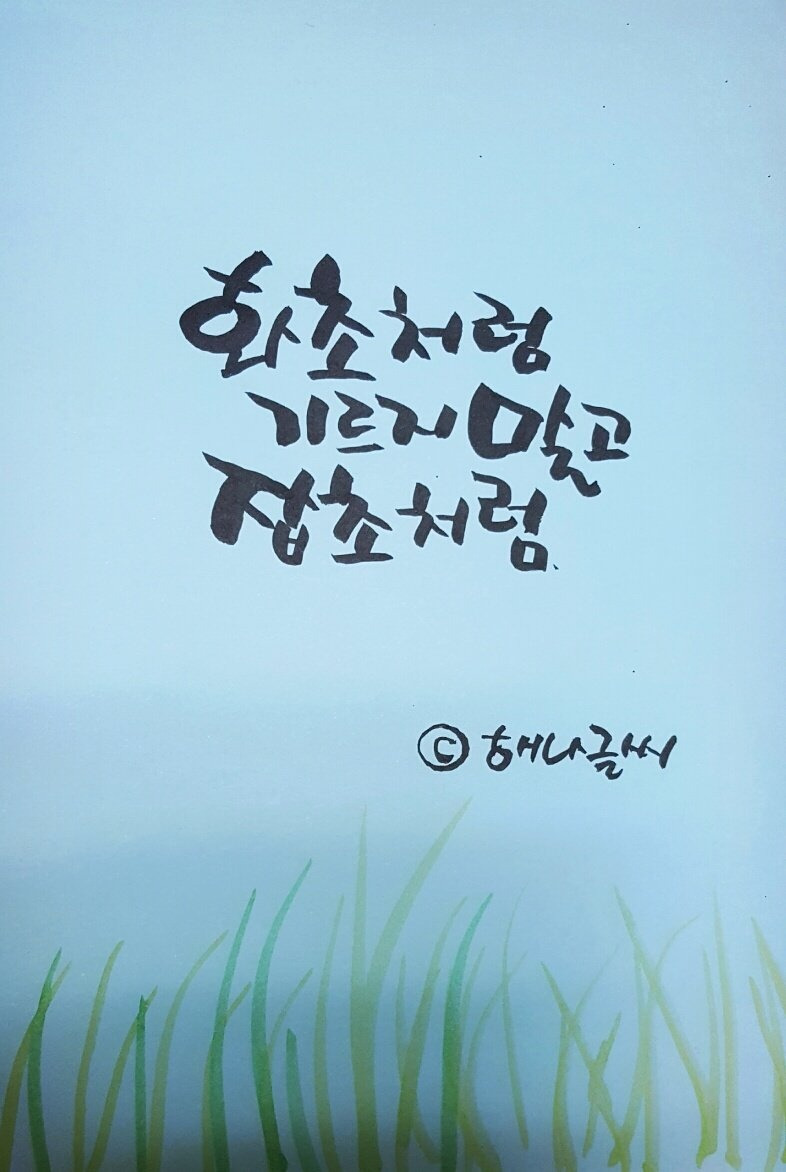 화초처럼
기르지 말고
잡초처럼.
ⓒ 해나글씨